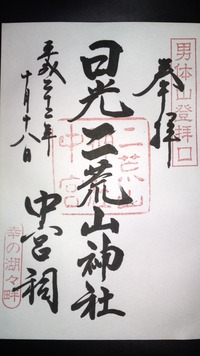 男体山登拝口
奉拝
日光二荒山神社
二荒山
神社
中宮
中宮祠
平成二十二年
十月十八日
幸の湖々畔